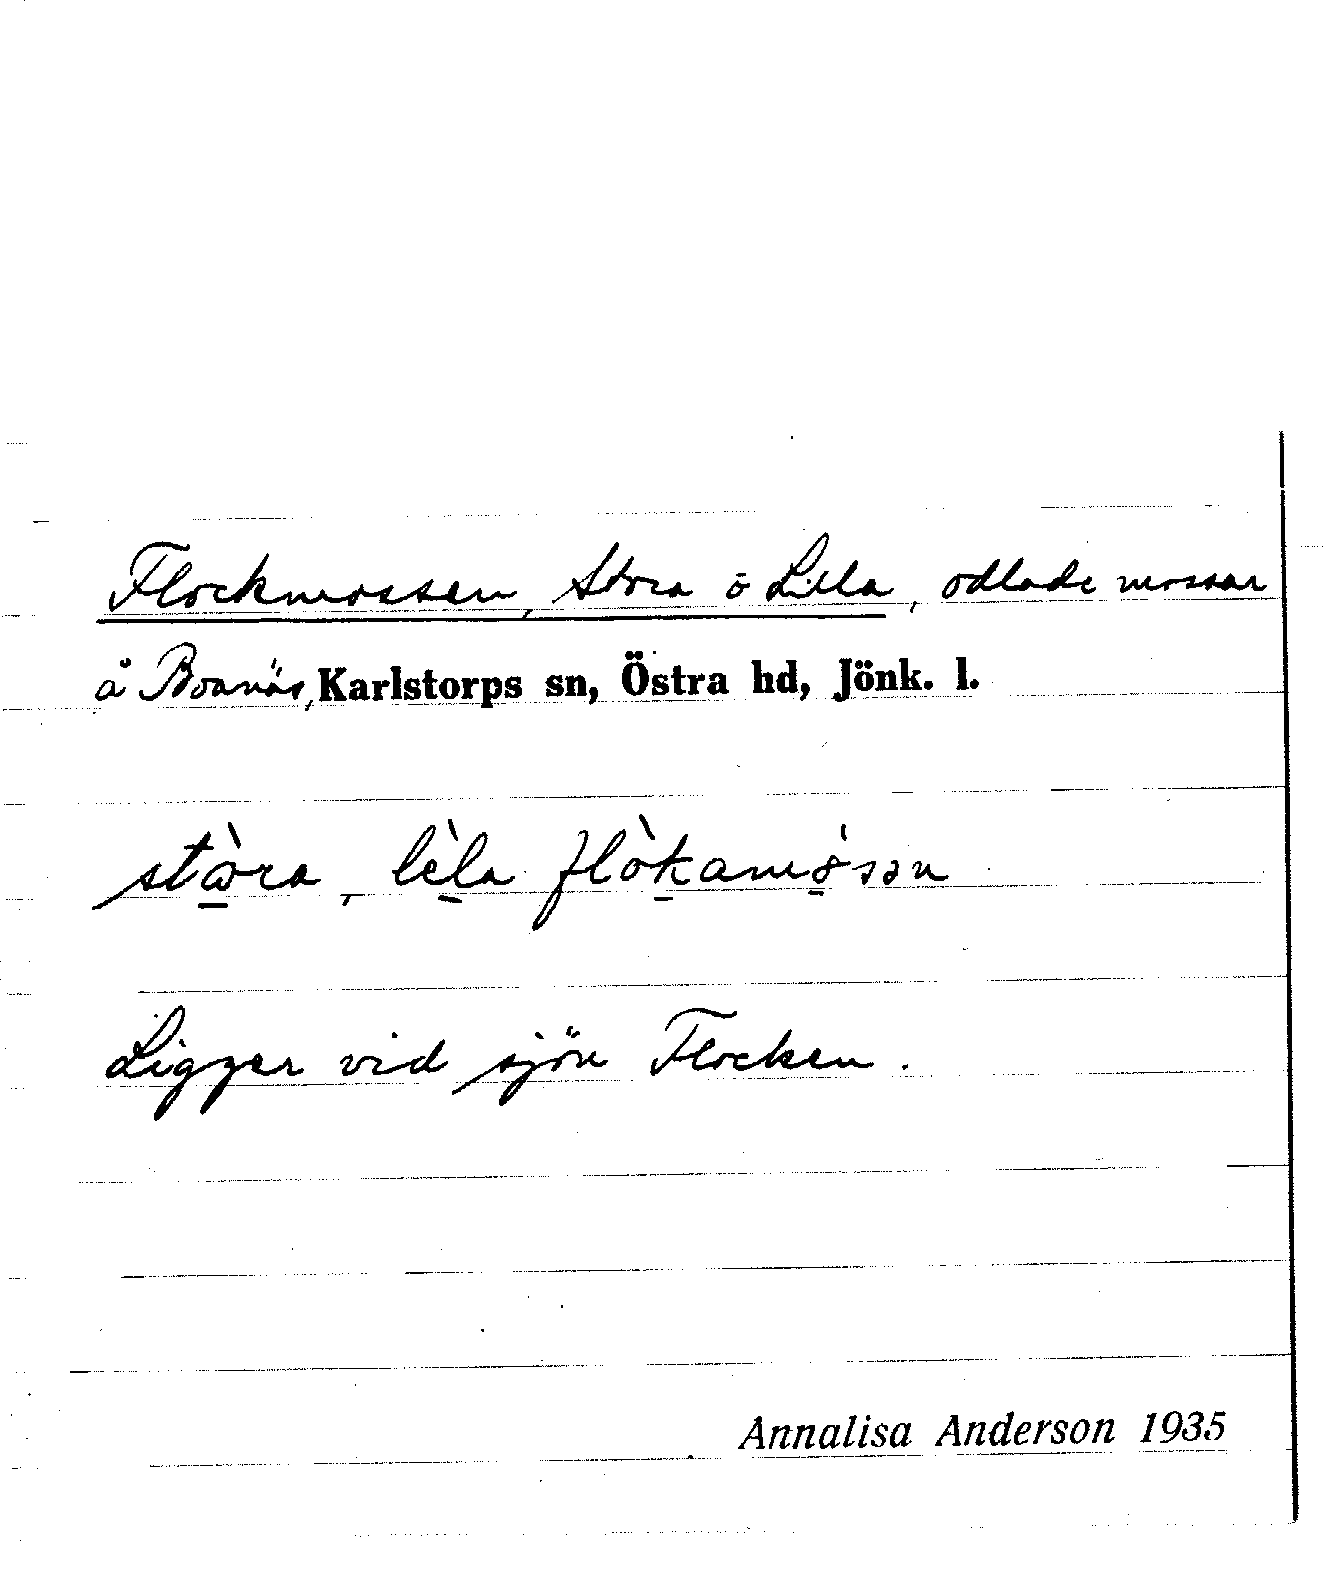 Flockmossen, Stora o Lilla, odlade mossar
å Boanäs, Karlstorps sn, Östra hd, Jönk. l.
stὼra, lὲla flòkamòsən
Ligger vid sjön Flocken.
Annalisa Anderson 1935